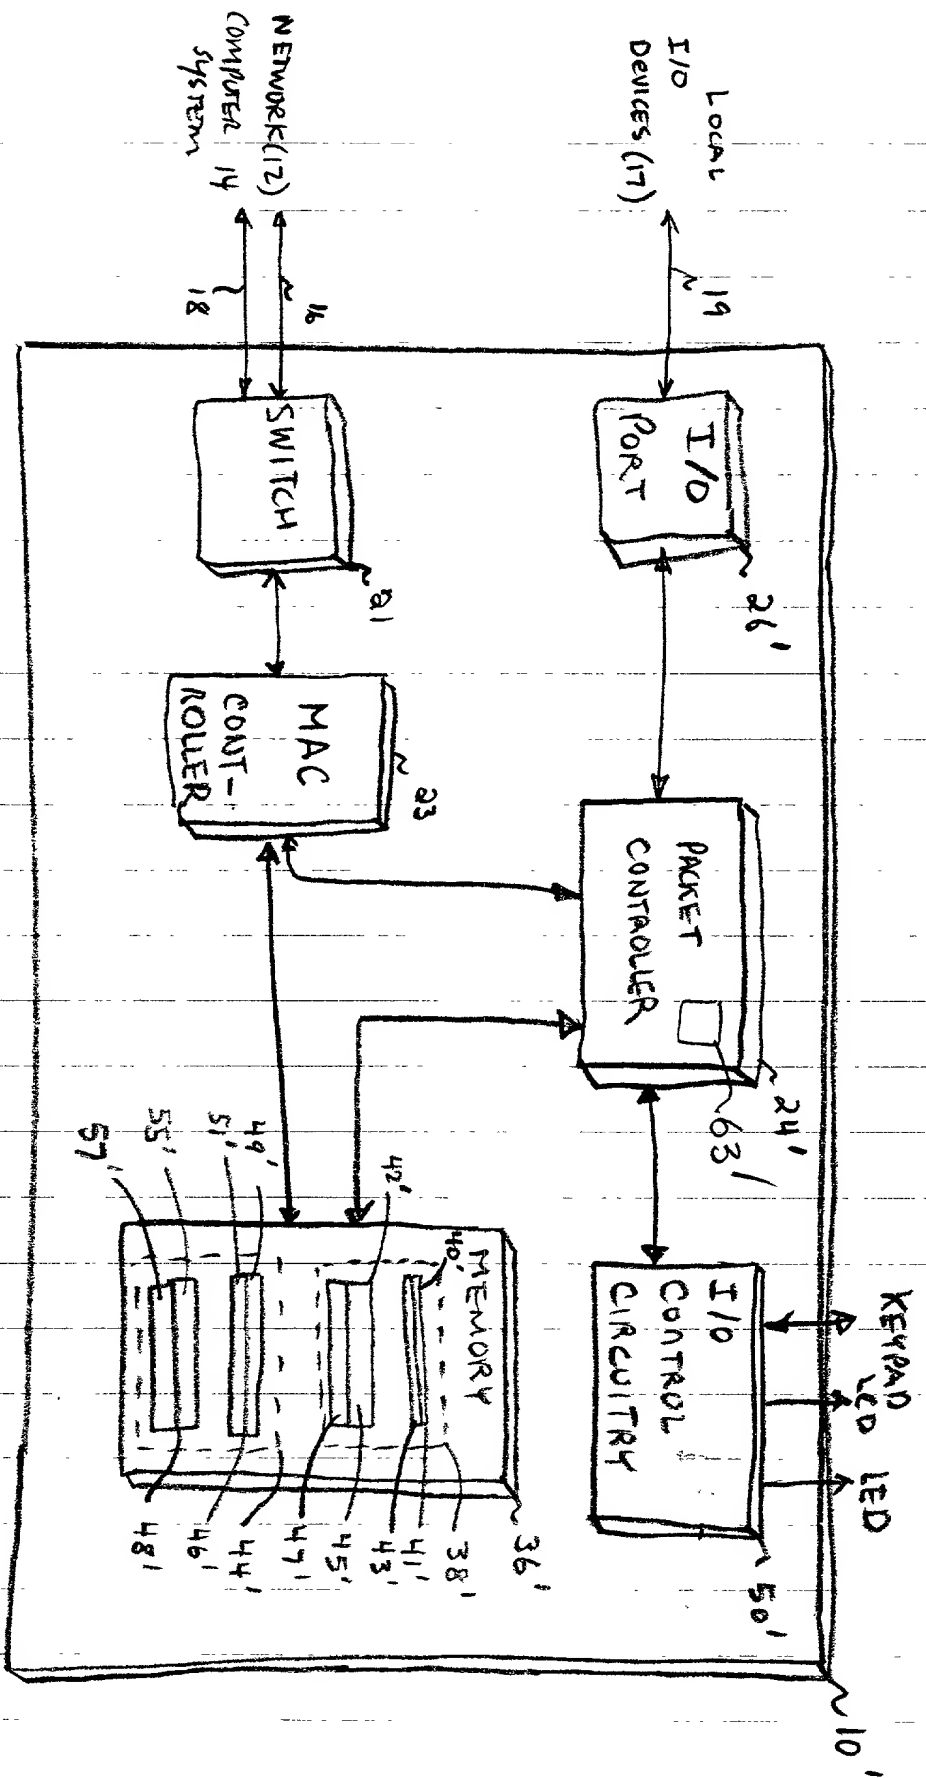 LOCAL
I/O
DEVICES (17)
19
NETWORK (12)
COMPUTER 14
SYSTEM
16
18
I/O
PORT
26'
SWITCH
21
MAC
CONT-
ROLLER
23
PACKET
CONTROLLER
24'
63'
I/O
CONTROL
CIRCUITRY
50'
KEYPAD
LCD
LED
MEMORY
36'
40'
42'
49'
51'
55'
57'
38'
41'
43'
45'
47'
44'
46'
48'
10'